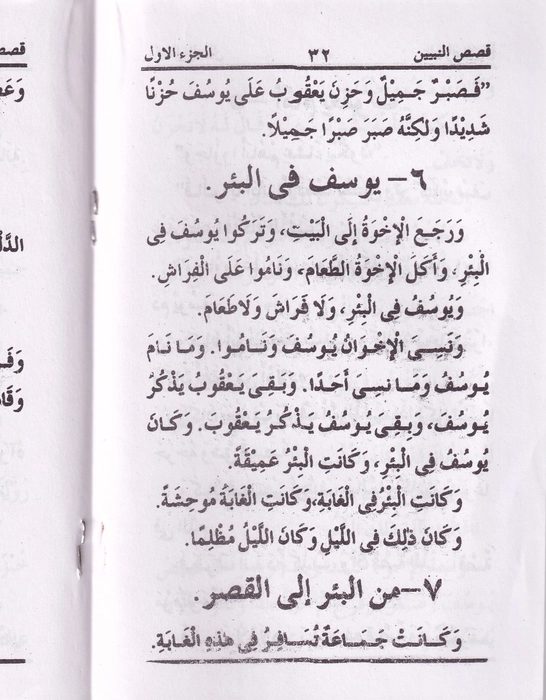 قصص النبيين ٣٢ الجزء الاول
”فَصَبْرٌ جَمِيْلٌ وَحَزِنَ يَعْقُوبُ عَلَى يُوسُفَ حُزْنًا
شَدِيْدًا وَلٰكِنَّهُ صَبَرَ صَبْرًا جَمِيْلًا.
٦– يوسف فى البئر.
وَرَجَعَ الْإِخْوَةُ إِلَى الْبَيْتِ، وَتَرَكُوا يُوسُفَ فِى
الْبِئْرِ، وَأَكَلَ الْإِخْوَةُ الطَّعَامَ، وَنَامُوا عَلَى الْفِرَاشِ.
وَيُوسُفُ فِى الْبِئْرِ، وَلَا فِرَاشَ وَلَا طَعَامَ.
وَنَسِىَ الْإِخْوَانُ يُوسُفَ وَنَامُوا. وَمَا نَامَ
يُوسُفُ وَمَا نسِىَ أَحَدًا. وَبَقِىَ يَعْقُوبُ يَذْكُرُ
يُوسُفَ، وَبِقِىَ يُوسُفُ يَذْكُرُ يَعْقُوبَ. وَكَانَ
يُوسُفُ فِى الْبِئْرِ، وَكَانَتِ الْبِئْرُ عَمِيْقَةً.
وَكَانَتِ الْبِئْرُ فِى الْغَابَةِ، وَكَانَتِ الْغَابَةُ مُوحِشَةً.
وَكَانَ ذٰلِكَ فِى اللَّيْلِ وَكَانَ اللَّيْلُ مُظْلِمًا.
٧– من البئر إلى القصر.
وَكَانَتْ جَمَاعَةٌ تُسَافِرُ فِى هٰذِهِ الْغَابَةِ.